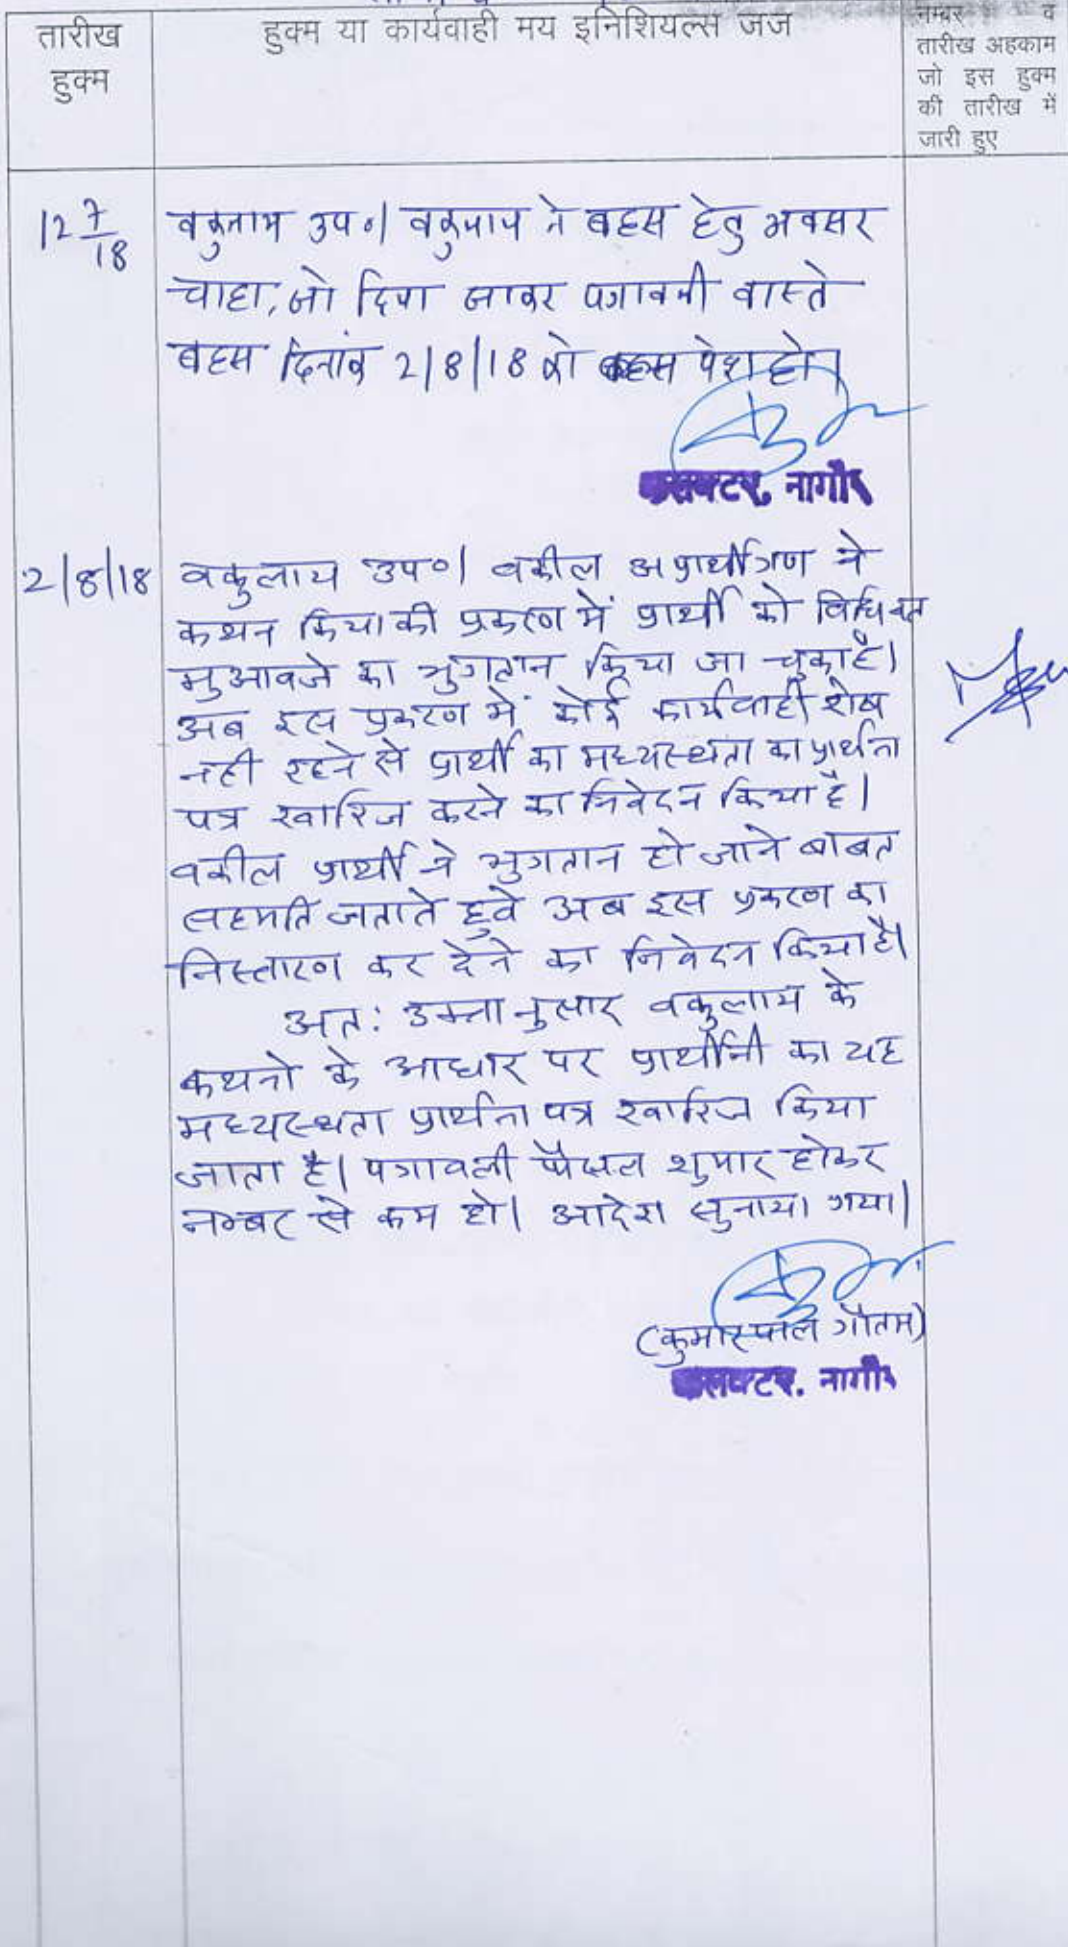 तारीख
हुक्म
हुक्म या कार्यवाही मय इनिशियल्स जज
नम्बर व
तारीख अहकाम
जो इस हुक्म
की तारीख में
जारी हुए
12 7/18
वकुलाय उप०। वकुलाय ने बहस हेतु अवसर
चाहा, जो दिया जाकर पत्रावली वास्ते
बहस दिनांक 2/8/18 को पेश हो।
कलक्टर, नागौर
2/8/18
वकुलाय उप०। वकील अप्रार्थीगण ने
कथन किया की प्रकरण में प्रार्थी को विधिवत
मुआवजे का भुगतान किया जा चुका है।
अब इस प्रकरण में कोई कार्यवाही शेष
नही रहने से प्रार्थी का मध्यस्थता का प्रार्थना
पत्र खारिज करने का निवेदन किया है।
वकील प्रार्थी ने भुगतान हो जाने बाबत
सहमति जताते हुवे अब इस प्रकरण का
निस्तारण कर देने का निवेदन किया है।
अत: उक्तानुसार वकुलाय के
कथनो के आधार पर प्रार्थीनी का यह
मध्यस्थता प्रार्थना पत्र खारिज किया
जाता है। पत्रावली फैसल शुमार होकर
नम्बर से कम हो। आदेश सुनाया गया।
(कुमारपाल गौतम)
कलक्टर, नागौर